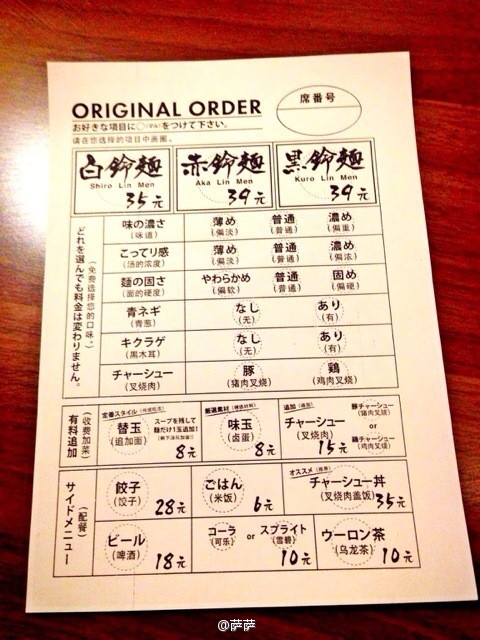 ORIGINAL ORDER
席番号
お好きな項目に○をつけて下さい。
请在您选择的项目中画圈。
白鈴麺 赤鈴麺 黒鈴麺
Shiro Lin Men Aka Lin Men Kuro Lin Men
35元 39元 39元
どれを選んでも料金は変わりません。
(免费选择您的口味。)
味の濃さ 薄め 普通 濃め
(味道) (偏淡) (普通) (偏重)
こってり感 薄め 普通 濃め
(汤的浓度) (偏淡) (普通) (偏浓)
麺の固さ やわらかめ 普通 固め
(面的硬度) (偏软) (普通) (偏硬)
青ネギ なし あり
(青葱) (无) (有)
キクラゲ なし あり
(黑木耳) (无) (有)
チャーシュー 豚 鶏
(叉烧肉) (猪肉叉烧) (鸡肉叉烧)
有料追加
(收费加菜)
定番スタイル
替玉
(追加面)
スープを残して
麺だけ1玉追加!
8元
厳選素材
味玉
(卤蛋)
8元
追加
チャーシュー
(叉烧肉)
15元
豚チャーシュー
(猪肉叉烧)
or
鶏チャーシュー
(鸡肉叉烧)
サイドメニュー
(配餐)
餃子
(饺子)
28元
ごはん
(米饭)
6元
オススメ
チャーシュー丼
(叉烧肉盖饭)
35元
ビール
(啤酒)
18元
コーラ or スプライト
(可乐) (雪碧)
10元
ウーロン茶
(乌龙茶)
10元
@萨萨